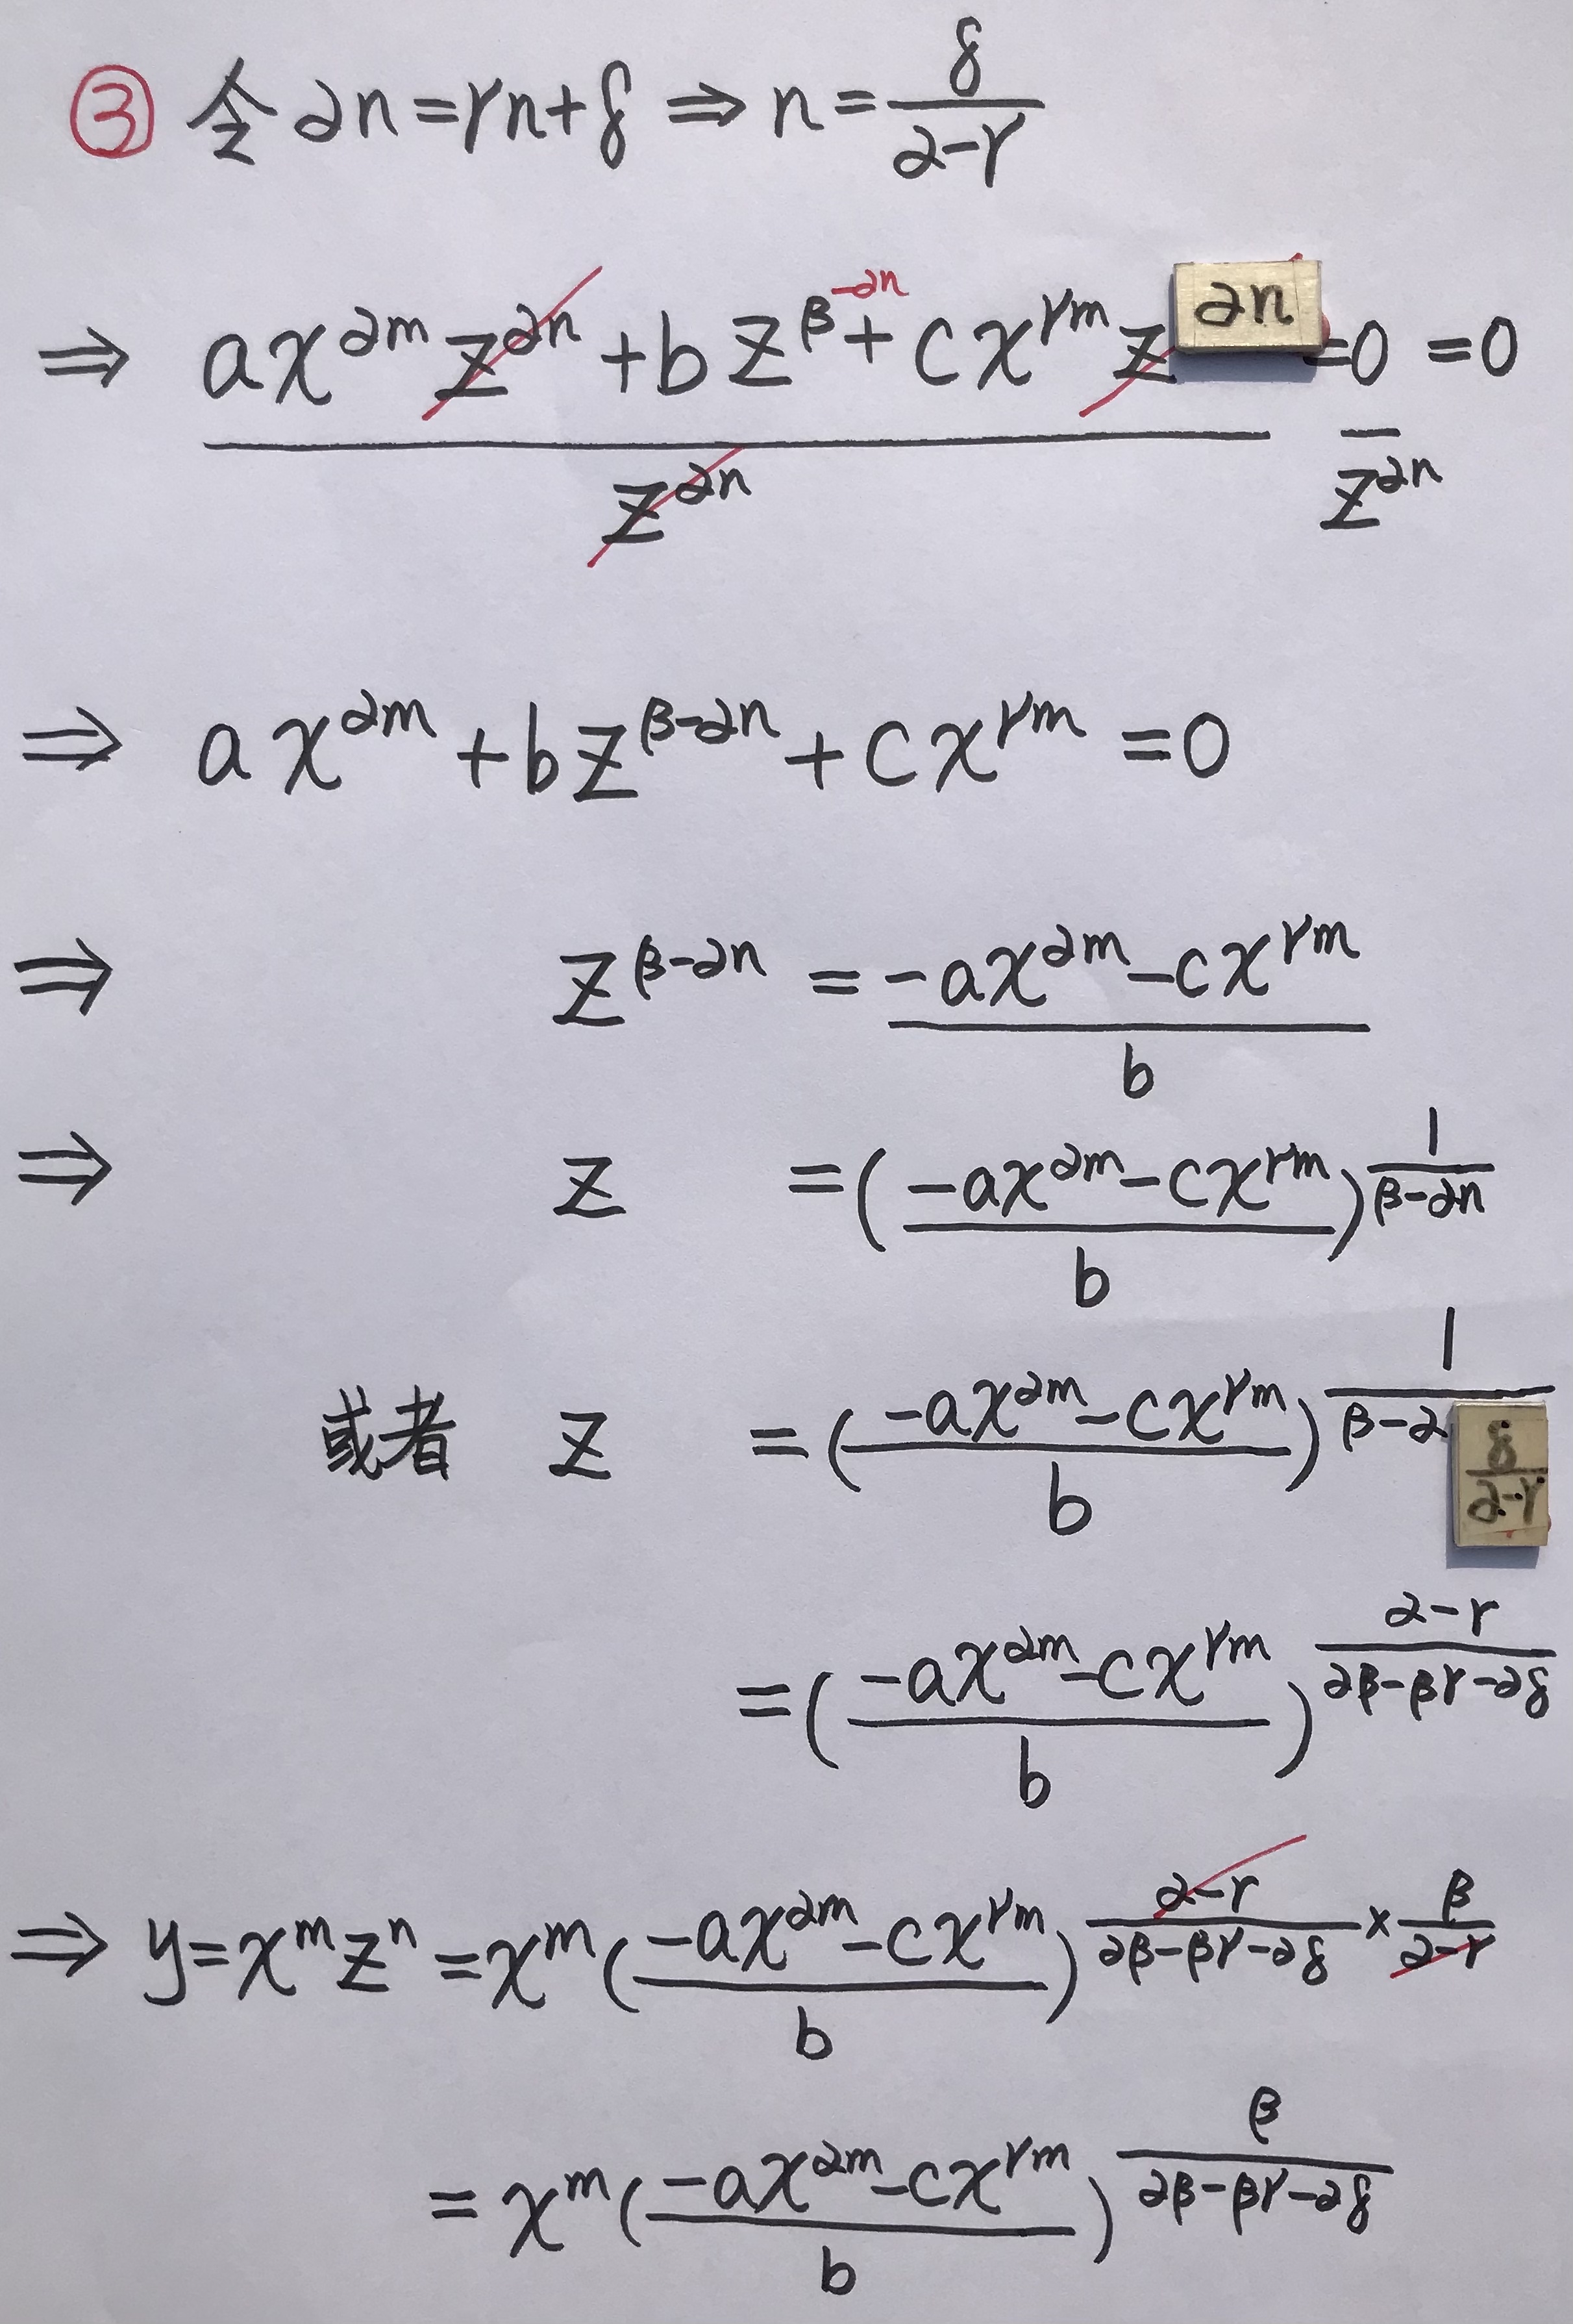 ③ 令 αn=γn+δ ⇒ n=δ/(α-γ)
⇒ (ax^{αm}z^{αn}+bz^{β-αn}+cx^{γm}z^{αn})/z^{αn} =0/z^{αn} =0
⇒ ax^{αm}+bz^{β-αn}+cx^{γm}=0
⇒ z^{β-αn} = (-ax^{αm}-cx^{γm})/b
⇒ z =((-ax^{αm}-cx^{γm})/b)^{1/(β-αn)}
或者 z =((-ax^{αm}-cx^{γm})/b)^{1/(β-α δ/(α-γ))}
=((-ax^{αm}-cx^{γm})/b)^{(α-γ)/(αβ-βγ-αδ)}
⇒ y=x^m z^n =x^m((-ax^{αm}-cx^{γm})/b)^{(α-γ)/(αβ-βγ-αδ) × β/(α-γ)}
= x^m((-ax^{αm}-cx^{γm})/b)^{β/(αβ-βγ-αδ)}